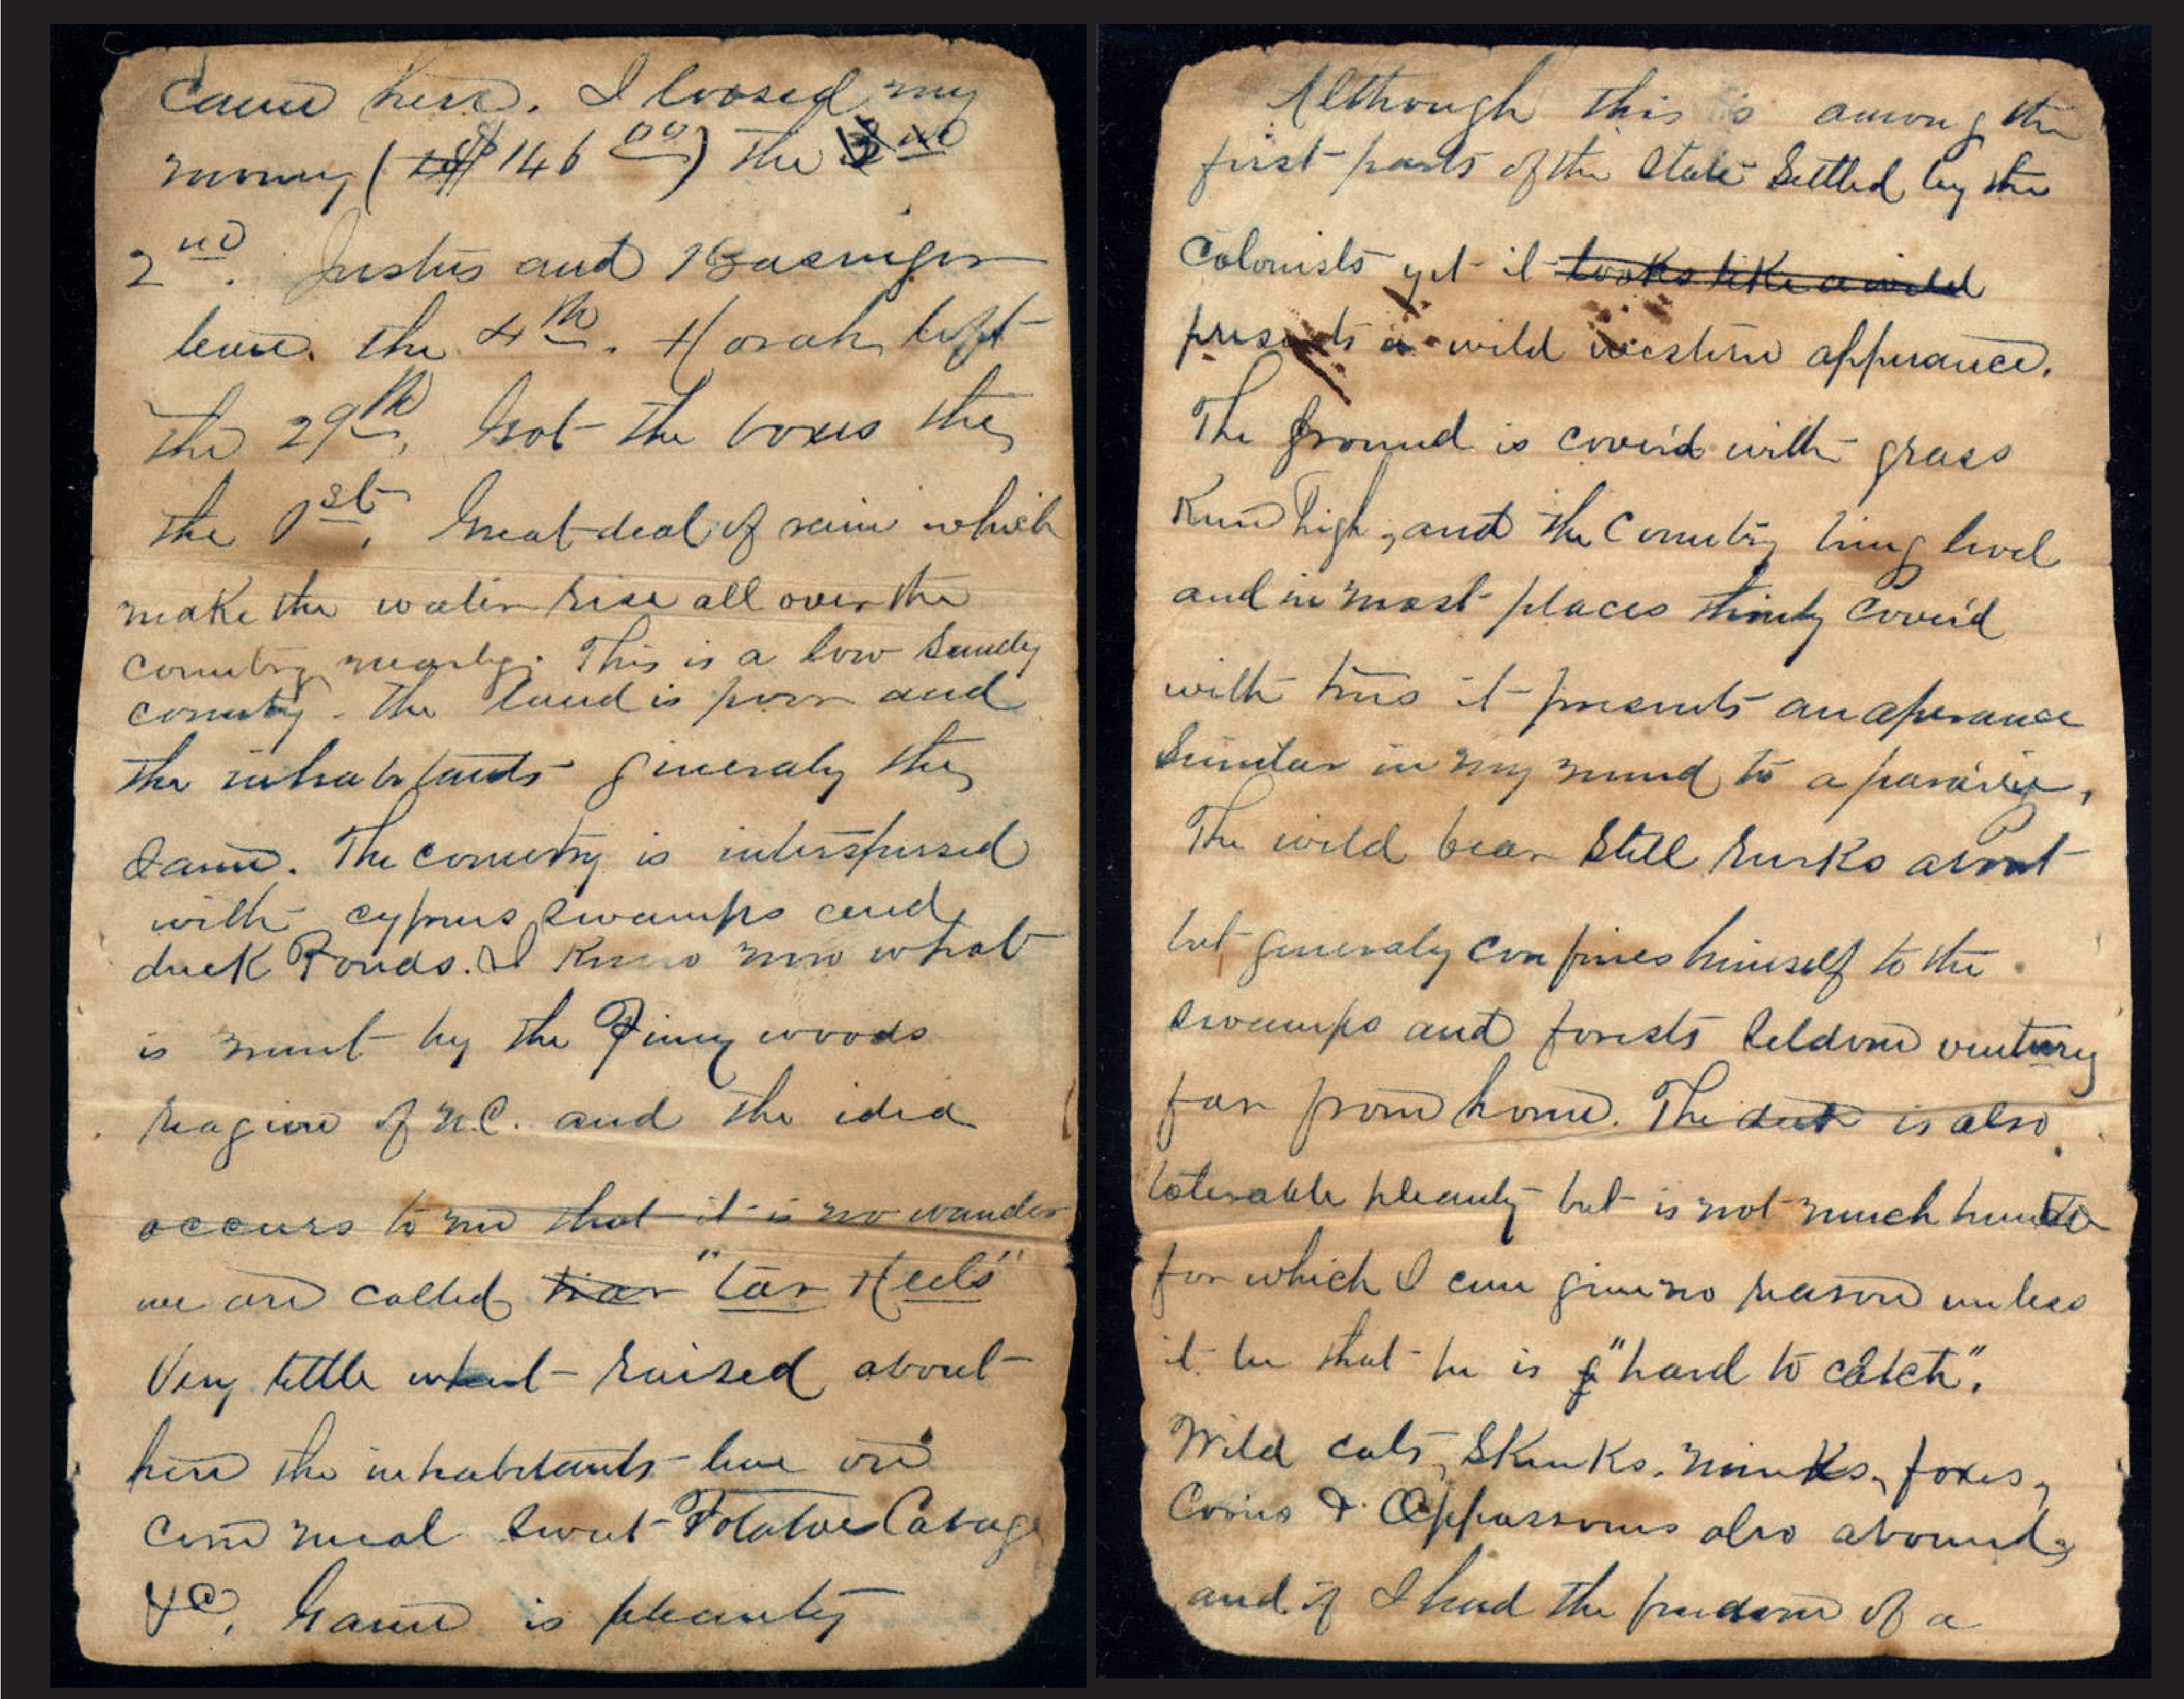 came here. I loosed my
money ($146 00) the
2nd. Justus and Basinger
leave the 4th. Horah left
the 29th. Got the boxes the
the 1st. Great deal of rain which
make the water rise all over the
country nearly. This is a low Sandy
county. the land is poor and
the inhabitants generaly the
Same. The country is interspersed
with cyprus swamps and
duck Ponds. I know now what
is ment by the Piny woods
reagion of N.C. and the idea
occurs to me that it is no wander
we are called "Tar Heels"
Very little wheat raised about
here the inhabitants live on
corn meal Sweet Potatoes Cabage
&C. Game is pleanty
Although this is among the
first parts of the State Settled by the
Colonists yet it looks like a wild
presents a wild western apperance.
The ground is cover'd with grass
Knee high, and the Country being level
and in most places thinly Cover'd
with trees it presents an aperance
Similar in my mind to a pararie,
The wild bear Still lurks about
but generaly confines himself to the
swamps and forests Seldom venturing
far from home. The deer is also
tolerable pleanty but is not much hunted
for which I can give no reason unless
it be that he is "hard to catch".
Wild cats, Skunks, minks, foxes,
Coons & Oppassoms also abound,
and if I had the freedom of a